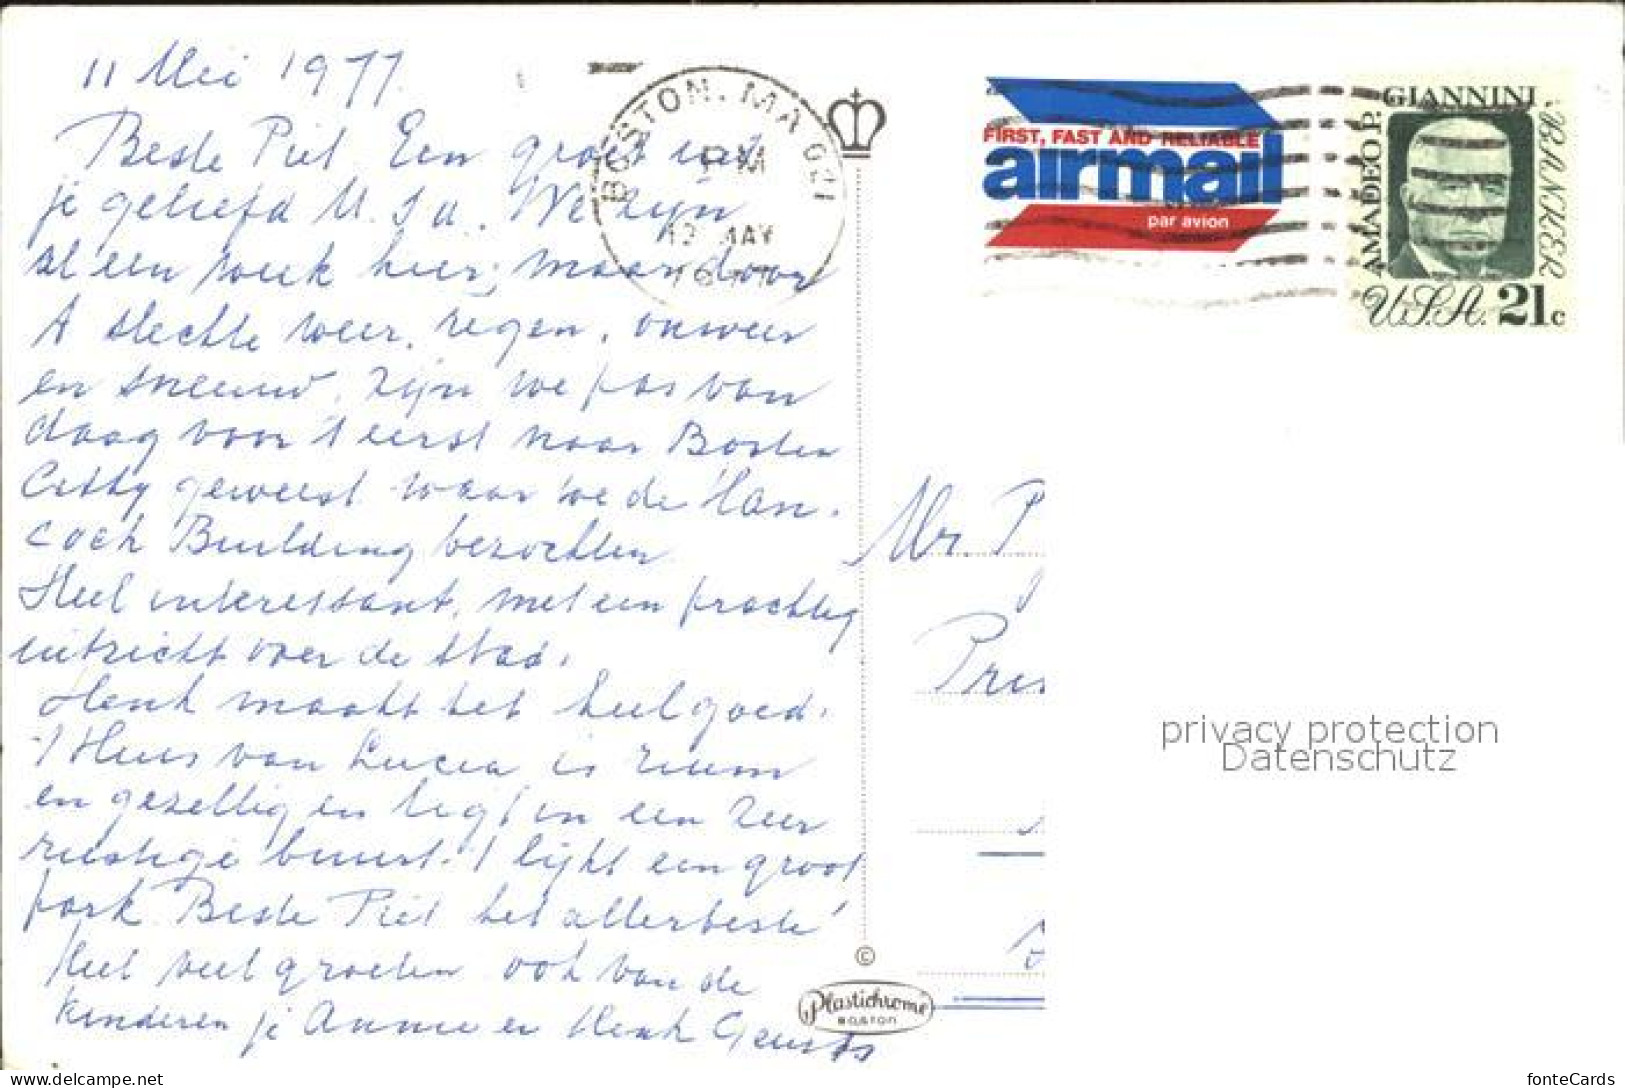 11 Mei 1977.
Beste Piet. Een groet uit
je geliefd U.S.A. We zijn
al een week hier, maar door
't slechte weer, regen, onweer
en sneeuw, zijn we pas van
daag voor 't eerst naar Boston
Citty geweest waar we de Han.
cock Building bezochten.
Heel interessant, met een prachtig
uitzicht over de stad.
Henk maakt het heel goed.
't Huis van Lucia is ruim
en gezellig en ligt in een zeer
rustige buurt. 't lijkt een groot
park. Beste Piet het allerbeste
Heel veel groeten ook van de
kinderen je Annie en Henk
BOSTON, MA 021
PM
12 MAY
1977
FIRST, FAST AND RELIABLE
airmail
par avion
AMADEO P. GIANNINI BANKER
U.S.A. 21c
Mr. P
Pri
privacy protection
Datenschutz
©
Plastichrome
BOSTON
delcampe.net
fonteCards